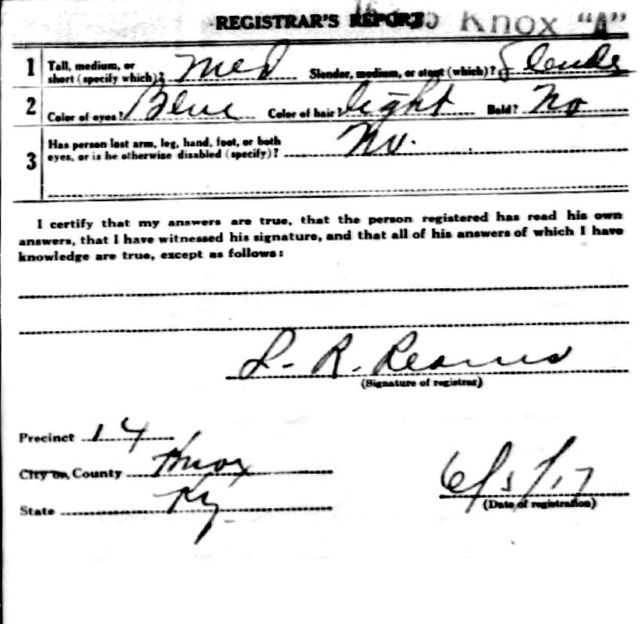 REGISTRAR'S REPORT Knox "A"
1 Tall, medium, or short (specify which)? Med Slender, medium, or stout (which)? Slender
2 Color of eyes? Blue Color of hair? light Bald? No
3 Has person lost arm, leg, hand, foot, or both
eyes, or is he otherwise disabled (specify)? No.
I certify that my answers are true, that the person registered has read his own
answers, that I have witnessed his signature, and that all of his answers of which I have
knowledge are true, except as follows:
L. R. Reams
(Signature of registrar)
Precinct 14
City or County Knox
State Ky. 6/5/17
(Date of registration)